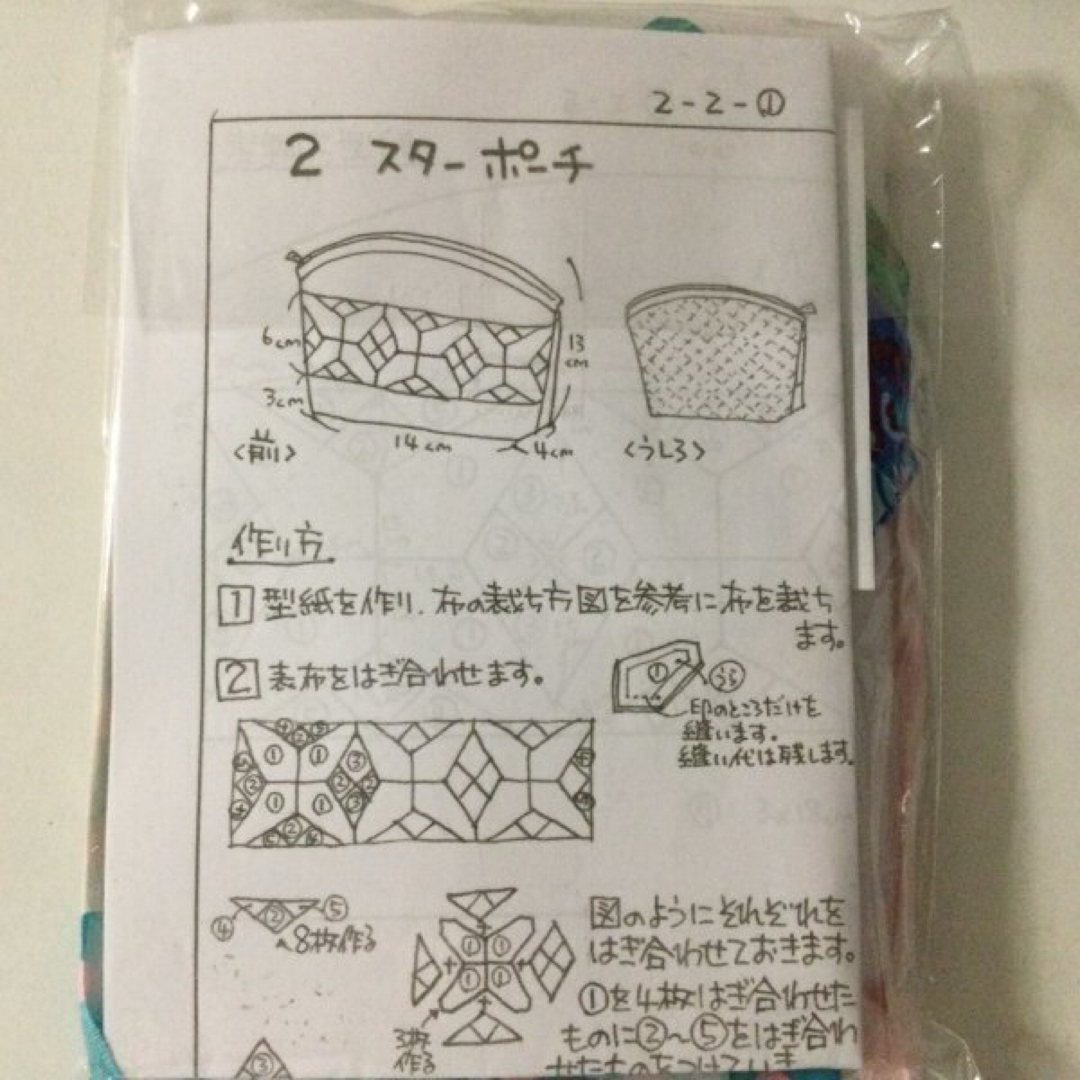 2-2-①
2 スターポーチ
6cm
13
cm
3cm
14cm
4cm
<前>
<うしろ>
作り方
1 型紙を作り、布の裁ち方図を参考に布を裁ち
ます。
2 表布をはぎ合わせます。
① うら
印のところだけを
縫います。
縫い代は残します。
④ ② ⑤
① ① ③
⑤ ② ② ②
④ ① ① ③
②
⑤ ④
④ ② ⑤
8枚作る
① ①
① ①
3枚
作る
③
図のようにそれぞれを
はぎ合わせておきます。
①を4枚はぎ合わせた
ものに②~⑤をはぎ合わ
せたものをつけていき